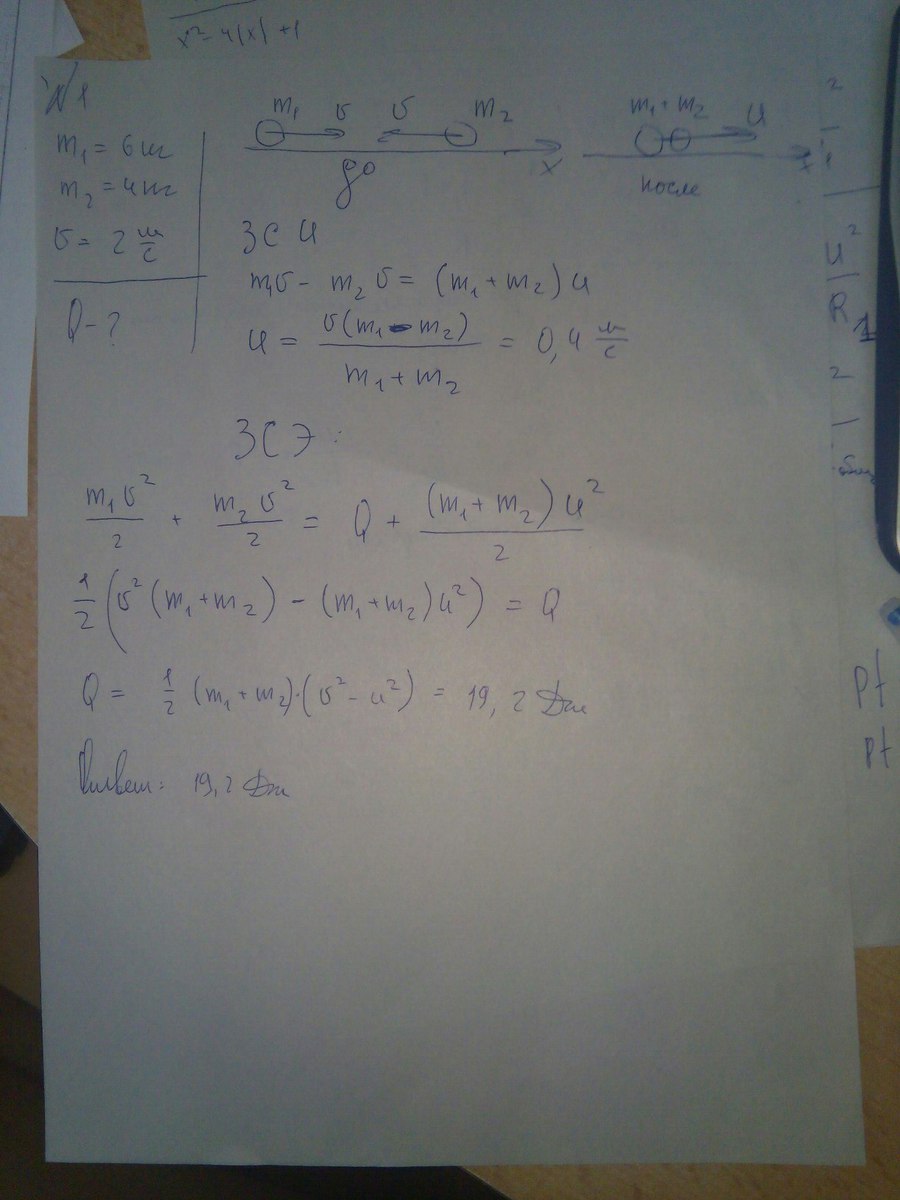 x² - 4|x| + 1
N1
m₁ = 6 кг
m₂ = 4 кг
υ = 2 м/с
Q - ?
m₁ υ υ m₂
x
до
m₁ + m₂ u
x
после
ЗСИ
m₁υ - m₂υ = (m₁ + m₂)u
u = υ(m₁ - m₂) / (m₁ + m₂) = 0,4 м/с
ЗСЭ:
m₁υ²/2 + m₂υ²/2 = Q + (m₁ + m₂)u²/2
1/2 (υ²(m₁ + m₂) - (m₁ + m₂)u²) = Q
Q = 1/2 (m₁ + m₂)·(υ² - u²) = 19,2 Дж
Ответ: 19,2 Дж
2
U²
R₁
2
Pt
Pt